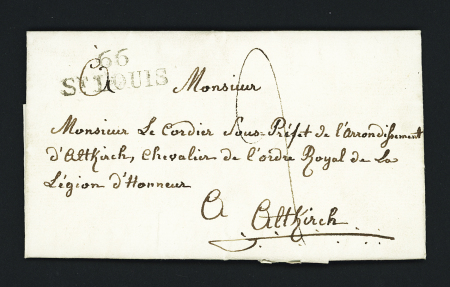 66
ST LOUIS
Monsieur
Monsieur Le Cordier Sous-Préfet de l'arrondissement
d'Altkirch, chevalier de l'ordre Royal de La
Légion d'Honneur
A Altkirch